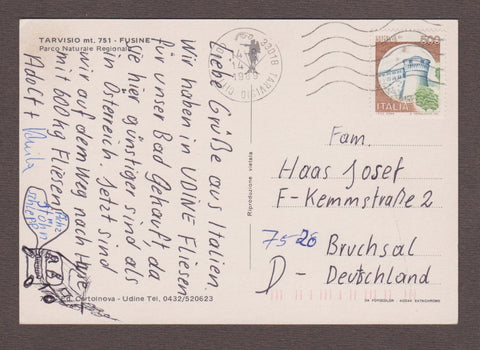 TARVISIO mt. 751 - FUSINE
Parco Naturale Regionale
Liebe Grüße aus Italien.
Wir haben in UDINE Fliesen
für unser Bad Gekauft, da
sie hier günstiger sind als
in Österreich. Jetzt sind
wir auf dem Weg nach Hause
mit 600kg Fliesen
Adolf +
Stöhn
Cartolnova - Udine Tel. 0432/520623
Riproduzione vietata
33018 TARVISIO
1989
500
ITALIA
Fam.
Haas Josef
F-Kemmstraße 2
7520 Bruchsal
D - Deutschland
DA FOTOCOLOR AGFA EKTACHROME